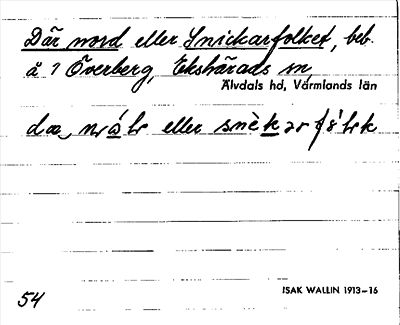 Där nord eller Snickarfolket, beb.
å 7 Överberg, Ekshärads sn,
Älvdals hd, Värmlands län
eller
54
ISAK WALLIN 1913-16